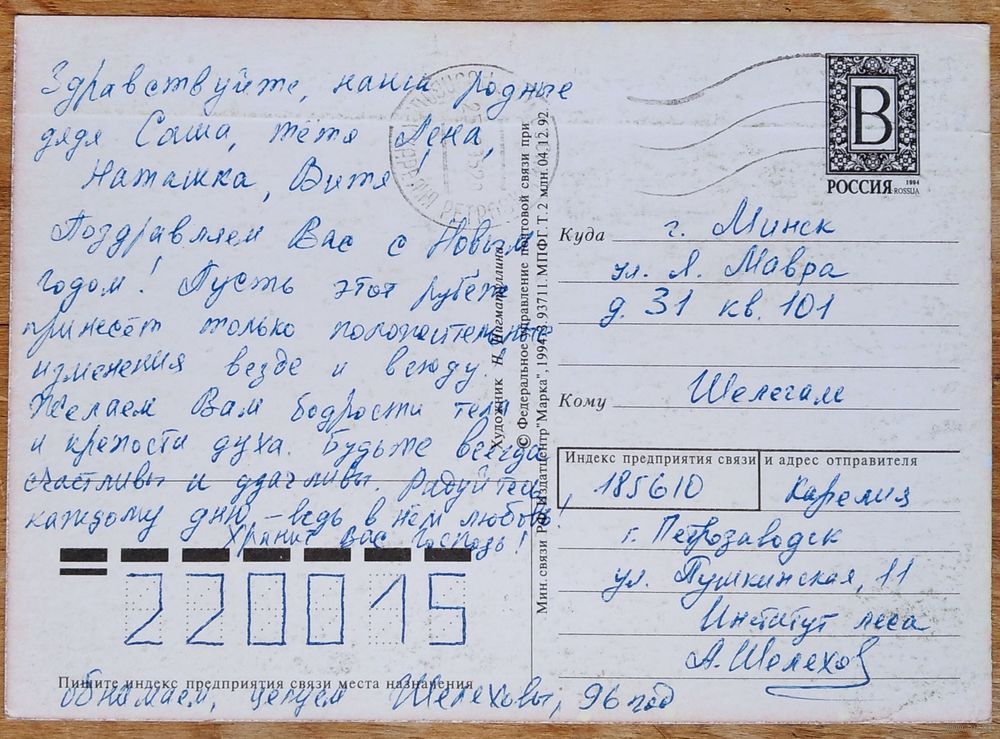 Здравствуйте, наши родные
дядя Саша, тётя Лена,
Наташка, Витя!
Поздравляем Вас с Новым
годом! Пусть этот рубеж
принесёт только положительные
изменения везде и всюду!
Желаем Вам бодрости тела
и крепости духа. Будьте всегда
счастливы и удачливы. Радуйтесь
каждому дню – ведь в нём любовь!
Храни Вас Господь!
220015
Пишите индекс предприятия связи места назначения
обнимаем, целуем Шелеховы, 96 год
Художник Н. Нигматуллина
© Федеральное управление почтовой связи при
Мин. связи РФ. Издатцентр "Марка", 1994. З. 93711. МПФГ. Т. 2 млн. 04.12.92.
В
РОССИЯ 1994
ROSSIJA
Куда г. Минск
ул. Я. Мавра
д. 31 кв. 101
Кому Шелегам
Индекс предприятия связи и адрес отправителя
185610, Карелия
г. Петрозаводск
ул. Пушкинская, 11
Институт леса
А. Шелехов